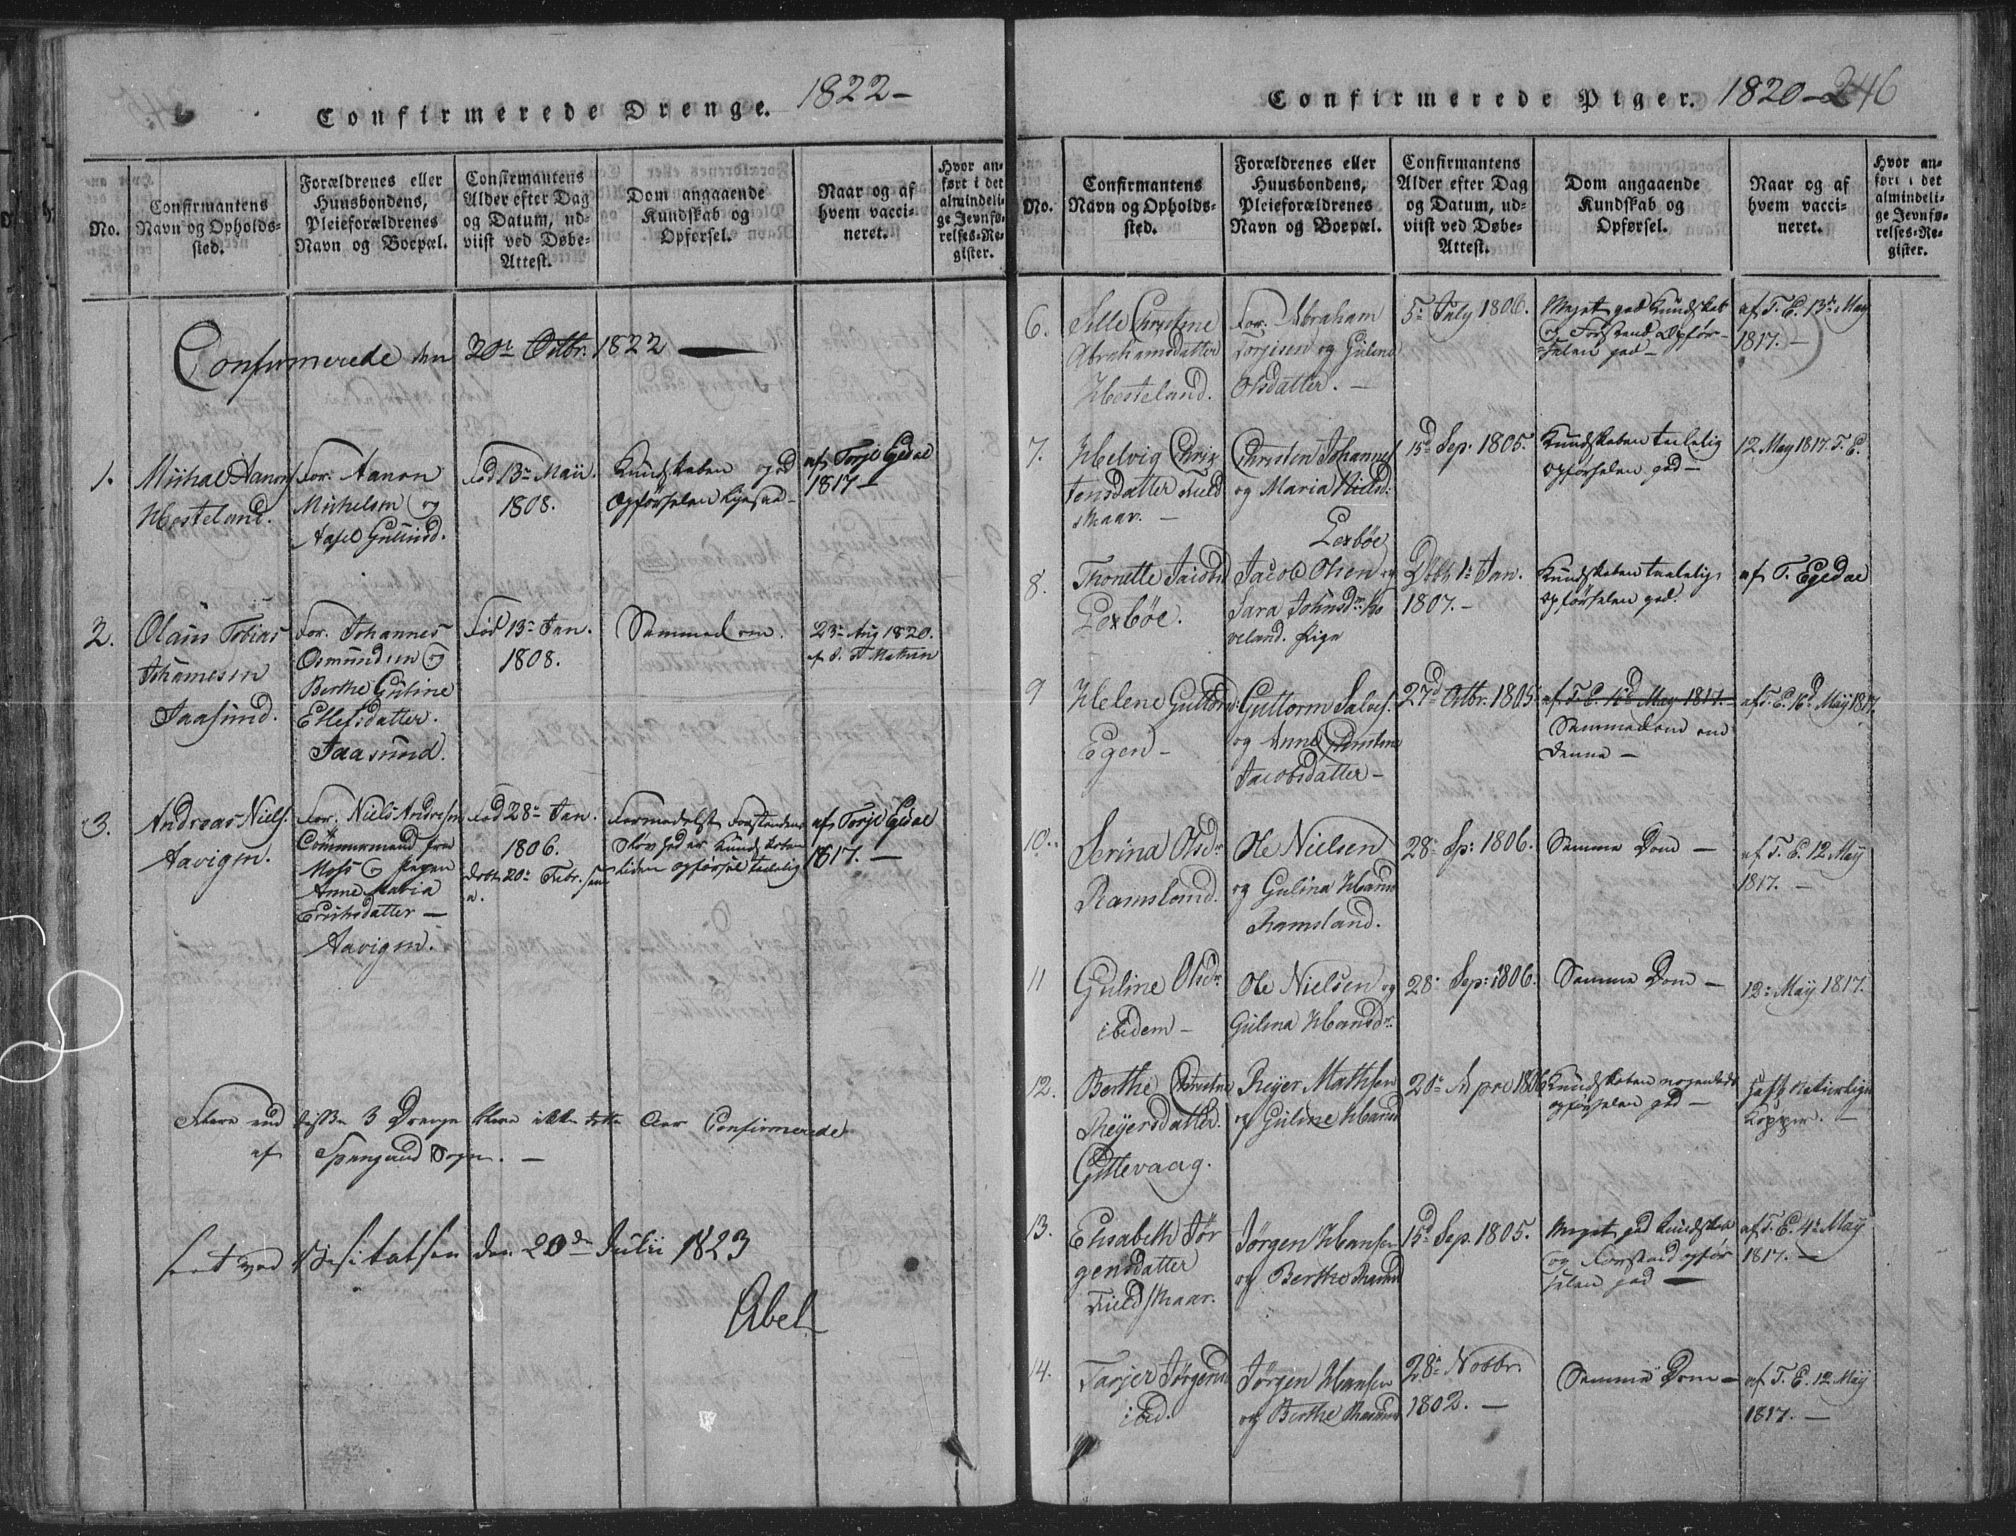 Confirmerede Drenge. 1822-
No.
Confirmantens
Navn og Opholds-
sted.
Forældrenes eller
Huusbondens,
Pleieforældrenes
Navn og Boepæl.
Confirmantens
Alder efter Dag
og Datum, ud-
viist ved Døbe-
Attest.
Dom angaaende
Kundskab og
Opførsel.
Naar og af
hvem vacci-
neret.
Hvor an-
ført i det
almindeli-
ge Jevnfø-
relses-Re-
gister.
Confirmerede den 20de Octbr. 1822 —
1.
Michal Aanons
Hosteland.
For. Aanon
Michelsen og
Aasel Gulimd.
Fød 13de Maii
1808.
Kundskaben god
Opførselen ligesaa-
af Torje Egdal
1817-
2.
Olaus Tobias
Johannesen
Jaasund.
For. Johannes
Osmundsen og
Berthe Guline
Ellefsdatter.
Jaasund.
Fød 13de Jan.
1808.
Samme dom.
23de Aug 1820.
3.
Andreas Niels.
Aavigen.
For. Niels Andresen
fra
Moss og Pigen
Anne Maria
Erichsdatter —
Aavigen.
Fød 28de Jan.
1806.
Døbt 20de Febr.
Formedelst Forstandens
Sløvhed er Kundskaben
liden opførsel taalelig
af Torje Egdal
1817. —
Flere end disse 3 Drenge bleve ikke dette Aar Confirmerede
af Spangereid Sogn. —
seet ved Visitatsen den 20de Julii 1823
Abel
Confirmerede Piger. 1820- 246
No.
Confirmantens
Navn og Opholds-
sted.
Forældrenes eller
Huusbondens,
Pleieforældrenes
Navn og Boepæl.
Confirmantens
Alder efter Dag
og Datum, ud-
viist ved Døbe-
Attest.
Dom angaaende
Kundskab og
Opførsel.
Naar og af
hvem vacci-
neret.
Hvor an-
ført i det
almindeli-
ge Jevnfø-
relses-Re-
gister.
6.
Sille Christine
Abrahamsdatter
Hosteland.
For. Abraham
Torjisen og Guline
Olsdatter. —
5te July 1806.
Meget god Kundskab
og Forstand Opfør-
selen god —
af T. E. 13de May
1817. —
7.
Helvig Chris
tensdatter Field
skaar. —
Christen Johannes
og Maria Nielsd:
15d Sep. 1805.
Kundskaben taalelig
opførselen god —
12 May 1817. T. E.
8.
Thonette Jacobsd
Lexbøe.
Lexbøe
Jacob Olsen og
Sara Johnsdr.
Døbt 1te Jan.
1807. -
Kundskaben taalelig,
opførselen god.
af T. Egdal
9
Helene Guttorms
Egen —
Guttorm Salves.
og Anne Christine
Jacobsdatter —
27d Octbr. 1805
af T. E. 16d May 1817. —
Samme dom om
denne —
af T. E. 16d May 1817.
10.
Serina Olsdr
Ramsland.
Ole Nielsen
og Gulina Hansd
Ramsland.
28de Sp: 1806.
Samme Dom —
af T. E. 12 May
1817. —
11
Guline Olsdr.
ibidem —
Ole Nielsen og
Gulina Hansdr.
28de Sep: 1806.
Samme Dom —
12te May 1817.
12.
Berthe Christine
Reijersdatter.
Gittevaag.
Reijer Mathsen
og Guline Hansd
20de Apr 1806
Kundskaben nogenledes
opførselen god —
haft naturlige
Kopper. —
13.
Elisabeth Jør
gensdatter
Fieldskaar.
Jørgen Hansen
og Berthe Rasmd
15d Sep. 1805.
Meget god Kundskab
og Forstand opfør
selen god —
af T. E. 4de May
1817. —
14.
Tarjer Jørgensd
ibid.
Jørgen Hansen
og Berthe Rasmd
28de Novbr.
1802. —
Samme Dom —
af T. E. 12 May
1817. —